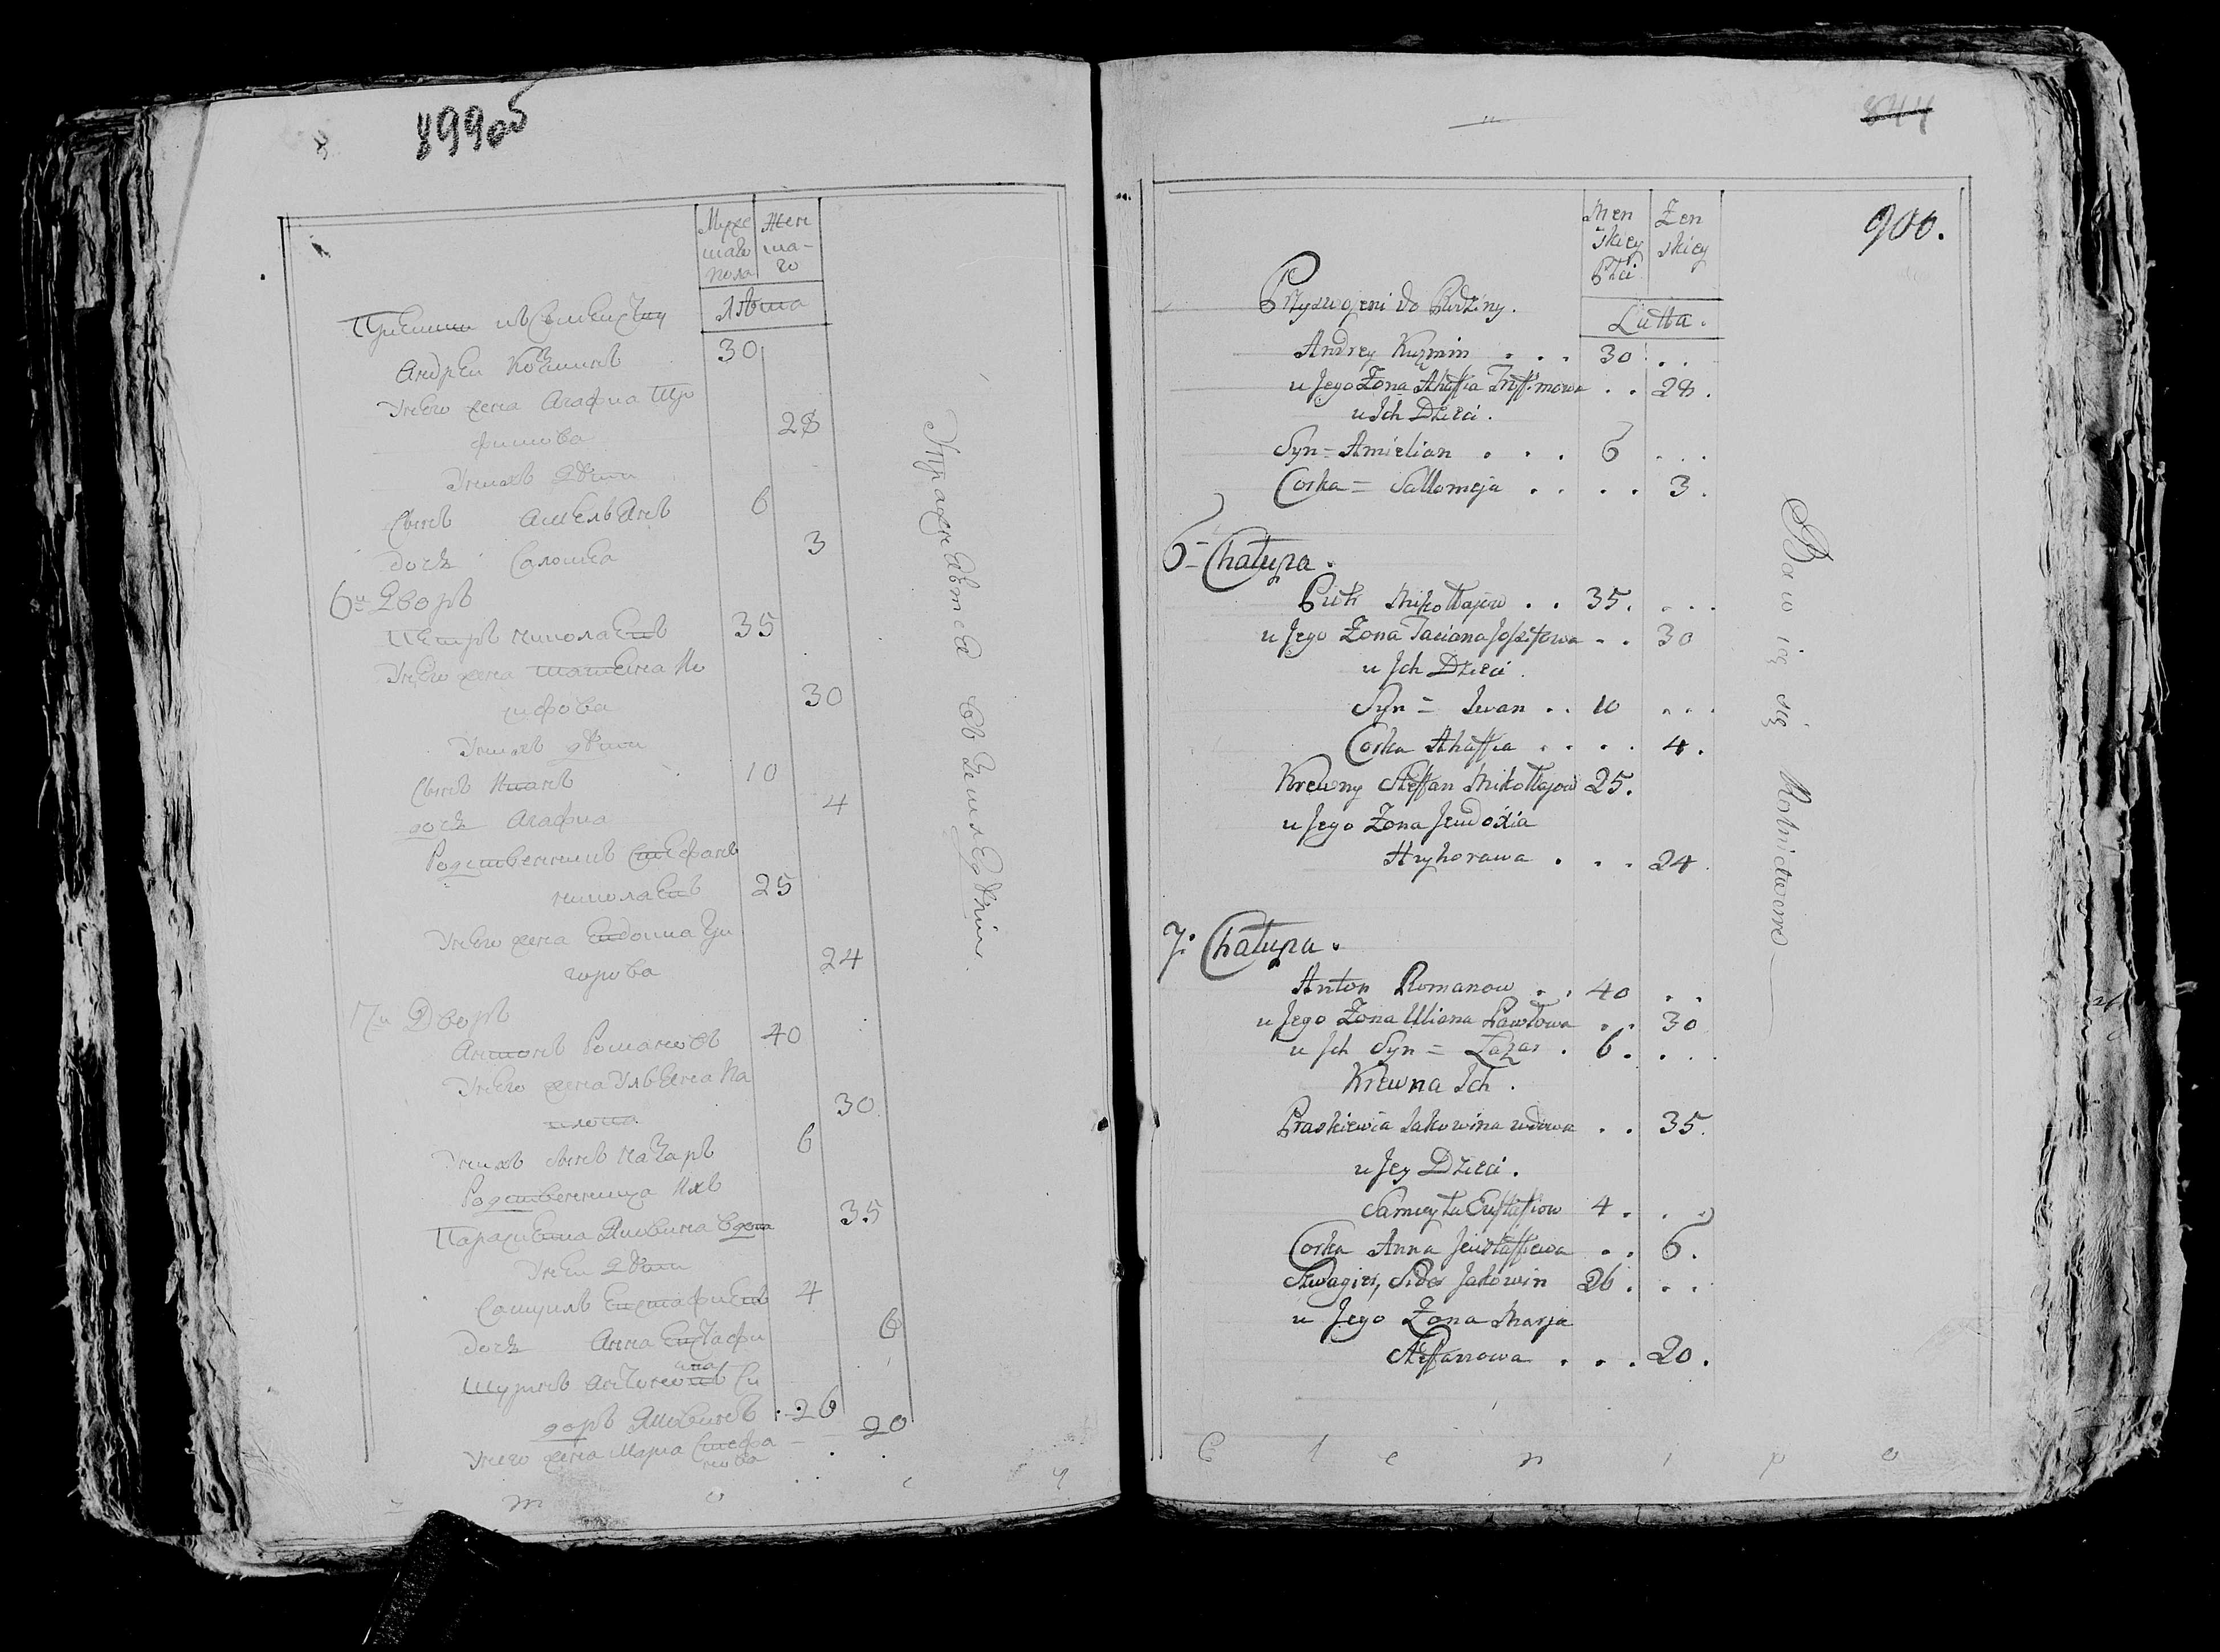 899об
Мужс Жен
каго ска-
пола го
Лѣта
Приняти въ Семейству
Андрей Козминъ 30
Унего жена Агафиа Тро
фимова 28
Унихъ дѣти
Сынъ Амельянъ 6
дочь Саломеа 3
6й Дворъ
Петръ Николаевъ 35
Унего жена Татьяна Ио
сифова 30
Унихъ дѣти
Сынъ Иванъ 10
дочь Агафиа 4
Родственникъ Стефанъ
Николаевъ 25
Унего жена Евдокиа Гри
горова 24
7й Дворъ
Антонъ Романовъ 40
Унего жена Ульяна Па
влова 30
Унихъ сынъ Назаръ 6
Родственница Ихъ
Параскевиа Яковина вдова 35
Уней дѣти
Самуилъ Евстафиевъ 4
дочь Анна Евстафи
ева 6
Шуринъ Антоновъ Си
доръ Яковинъ 26
Унего жена Мариа Стефа
нова 20
Упражняется въ земледѣліи.
844
900.
Men Zen
skiey skiey
Płci
Latta.
Przyswojeni do Rodziny.
Andrey Kuzmin . . . 30 . .
u Jego Zona Ahaffia Troffimowa . . 28.
u Ich Dzieci.
Syn = Amielian . . . 6 . . .
Corka = Sallomeja . . . . 3.
6 = Chałupa.
Piotr Mikołłajow . . 35. . . .
u Jego Zona Taciana Jozefowa . . 30
u Jch Dzieci.
Syn = Iwan . . 10 . . .
Corka Ahaffia . . . . 4.
Krewny Steffan Mikołłajow 25.
u Jego Zona Jeudoxia
Hryhorawa . . . 24
7: Chałupa.
Anton Romanow . . 40 . .
u Jego Zona Uliana Pawłowa . . 30
u Jch Syn = Łazar . 6. . . .
Krewna Ich.
Praskiewia Jakowina wdowa . . 35.
u Jey Dzieci.
Samuyła Eustafiow 4. . .
Corka Anna Jeustaffiewa . . 6.
Szwagier, Sidor Jakowin 26. . .
u Jego Zona Marja
Steffanowa . . . 20.
Baw ią się Rolnictwem